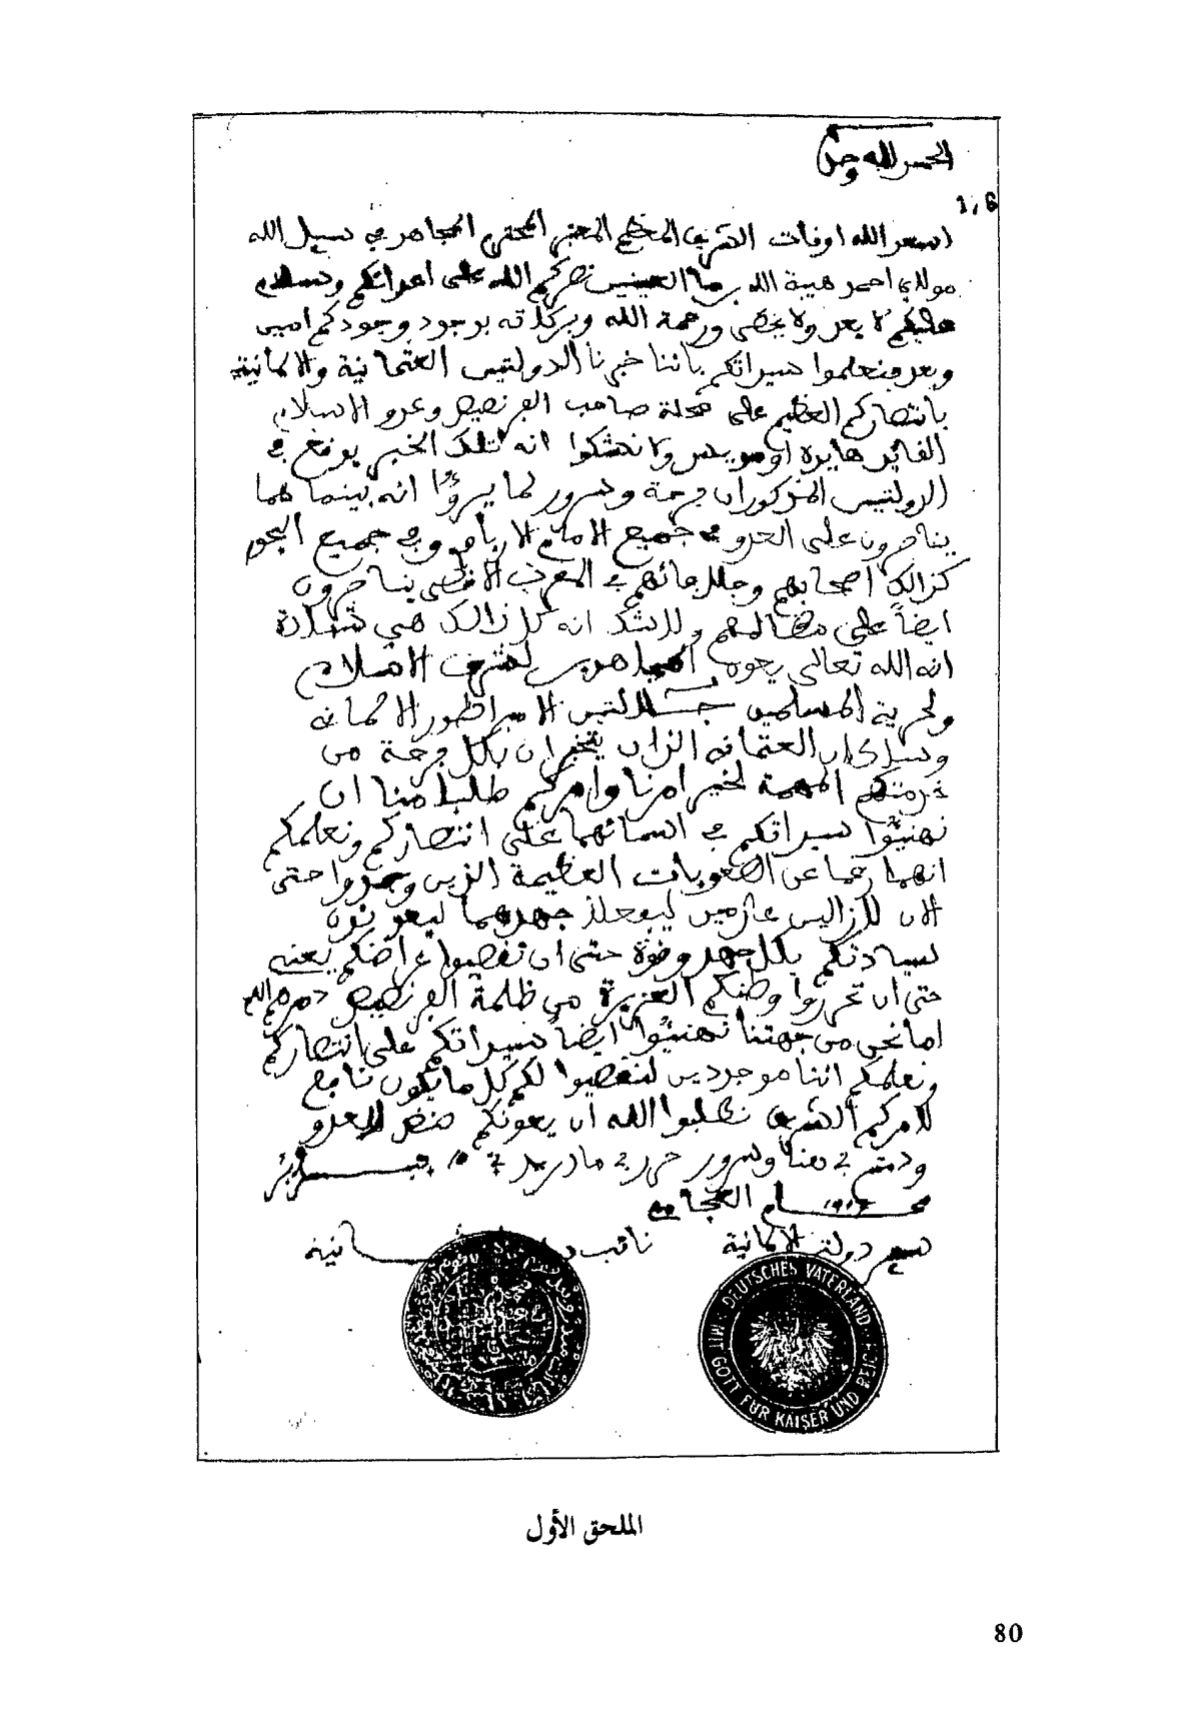 الحمد لله وحده
اسعد الله اوقات الشريف المعظم المحترم المجاهد في سبيل الله
مولاي احمد هيبة الله بن ما العينين نصركم الله على اعدائكم وسلام
عليكم لا يعد ولا يحصى ورحمة الله وبركاته بوجود وجودكم امين
وبعد فنعلموا سيراتكم باننا خبرنا الدولتين العثمانية والالمانية
بانتصاركم العظيم على محلة صاحب الفرنصيص وعدو الاسلام
القائد هايدة اومويس ولا نشكوا انه تلك الخبر يوقع في
الدولتين المذكوران فرحة وسرور لما يروا انه بينما هما
يناصرون على العدو في جميع الاماكن الارباب وفي جميع البحور
كذالك اصحابهم وحلل جائهم في المغرب الاقصى يناصرون
ايضاً على مظالمهم وللشك انه كل ذالك هي شهادة
انه الله تعالى يعون المجاهدين لشرف الاسلام
ولحرية المسلمين جلالتين الامبراطور الالمانه
وسلطان العثمانه الذان يتخبران بكل فرحة من
خدمتكم المهمة لخير امرنا وامركم طلبا منا ان
نهنئوا سيراتكم في اسمائهما على انتصاركم ونعلمكم
انهما رغما عن الصعوبات العظيمة الذين وجدوا حتى
الان لازالين عازمين ليفعلا جهدهما ليعونون
لسيادتكم بكل جهد وقوة حتى ان تقضيوا غراضكم يعنيه
حتى ان تحرروا وطنكم العزيزة من ظلمة الفرنصيص دمرهم الله
اما نحن من جهتنا نهنئوا ايضاً سيراتكم على انتصاركم
ونعلمكم اننا موجودين لنقضيوا لكم كل ما يكون نافع
لامركم الشريف نطلبوا الله ان يعونكم ضد العدو
ودمتم في هنا وسرور حرر في مادريد في 10 فبراير
عام 1917
سفير دولة الالمانية نائب
DEUTSCHES VATERLAND · MIT GOTT FÜR KAISER UND REICH
الملحق الأول
80